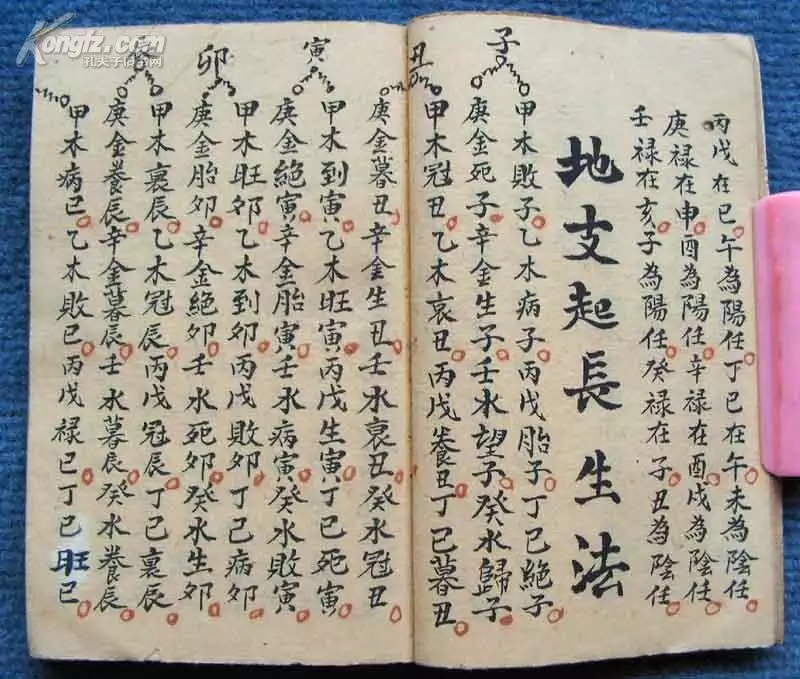 丙戊在巳午為陽任丁巳在午未為陰任
庚禄在申酉為陽任辛禄在酉戌為陰任
壬禄在亥子為陽任癸禄在子丑為陰任
地支起長生法
子
甲木敗子乙木病子丙戊胎子丁巳絕子
庚金死子辛金生子壬水望子癸水歸子
丑
甲木冠丑乙木哀丑丙戊養丑丁巳暮丑
庚金暮丑辛金生丑壬水裏丑癸水冠丑
寅
甲木到寅乙木旺寅丙戊生寅丁巳死寅
庚金絕寅辛金胎寅壬水病寅癸水敗寅
卯
甲木旺卯乙木到卯丙戊敗卯丁巳病卯
庚金胎卯辛金絕卯壬水死卯癸水生卯
甲木裏辰乙木冠辰丙戊冠辰丁巳裏辰
庚金養辰辛金暮辰壬水暮辰癸水養辰
甲木病巳乙木敗巳丙戊禄巳丁巳旺巳
Kongfz.com